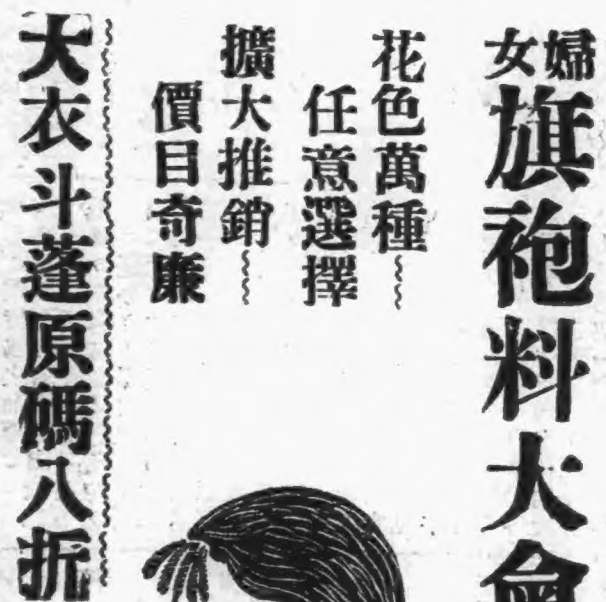 婦女
旗袍料大會
花色萬種
任意選擇
擴大推銷
價目奇廉
大衣斗蓬原碼八折